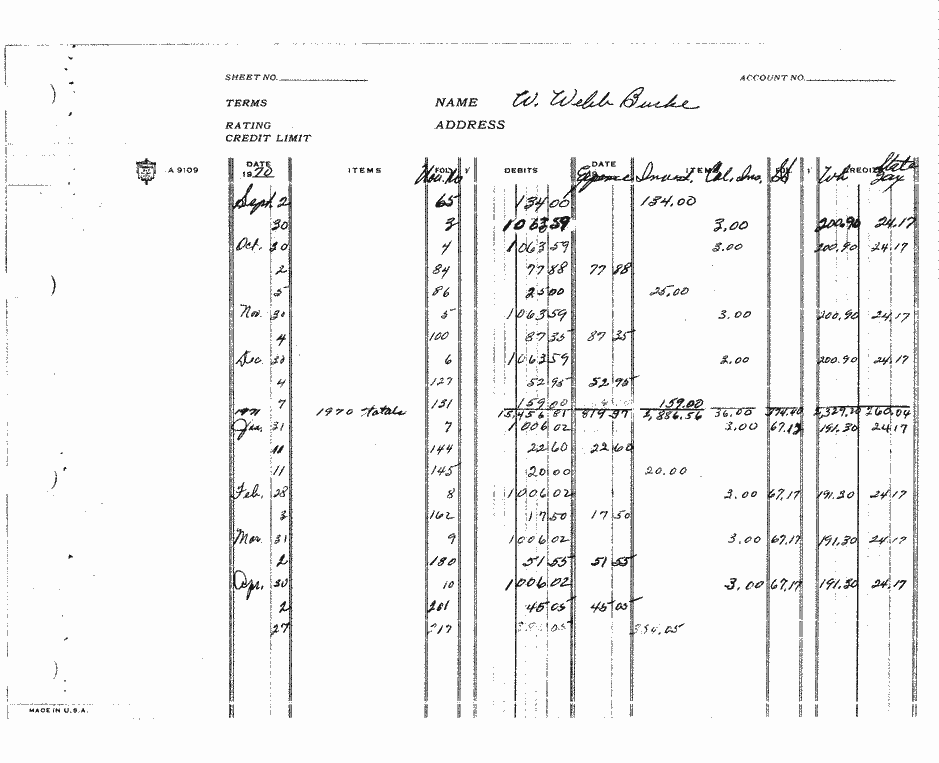 SHEET NO. ACCOUNT NO.
TERMS NAME W. Webb Burke
RATING ADDRESS
CREDIT LIMIT
A 9109 DATE 1970 ITEMS FOLIO √ DEBITS DATE Expense Invest. ITEMS Col. Ins. FOL. √ Wh CREDITS State Tax
Sept. 2 65 134 00 134.00
30 3 1063 59 3.00 200.90 24.17
Oct. 30 4 1063 59 3.00 200.90 24.17
2 84 77 88 77 88
5 86 25 00 25.00
Nov. 30 5 1063 59 3.00 200.90 24.17
4 100 87 35 87 35
Dec. 30 6 1063 59 3.00 200.90 24.17
4 127 52 95 52 95
7 131 159 00 159.00
1971 1970 totals 15,456 81 819 37 3,886.56 36.00 374.40 2,329.20 260.04
Jan. 31 7 1006 02 3.00 67.17 191.30 24.17
11 144 22 60 22 60
11 145 20 00 20.00
Feb. 28 8 1006 02 3.00 67.17 191.30 24.17
3 162 17 50 17 50
Mar. 31 9 1006 02 3.00 67.17 191.30 24.17
2 180 51 55 51 55
Apr. 30 10 1006.02 3.00 67.17 191.30 24.17
2 201 45 05 45 05
27 217
MADE IN U.S.A.